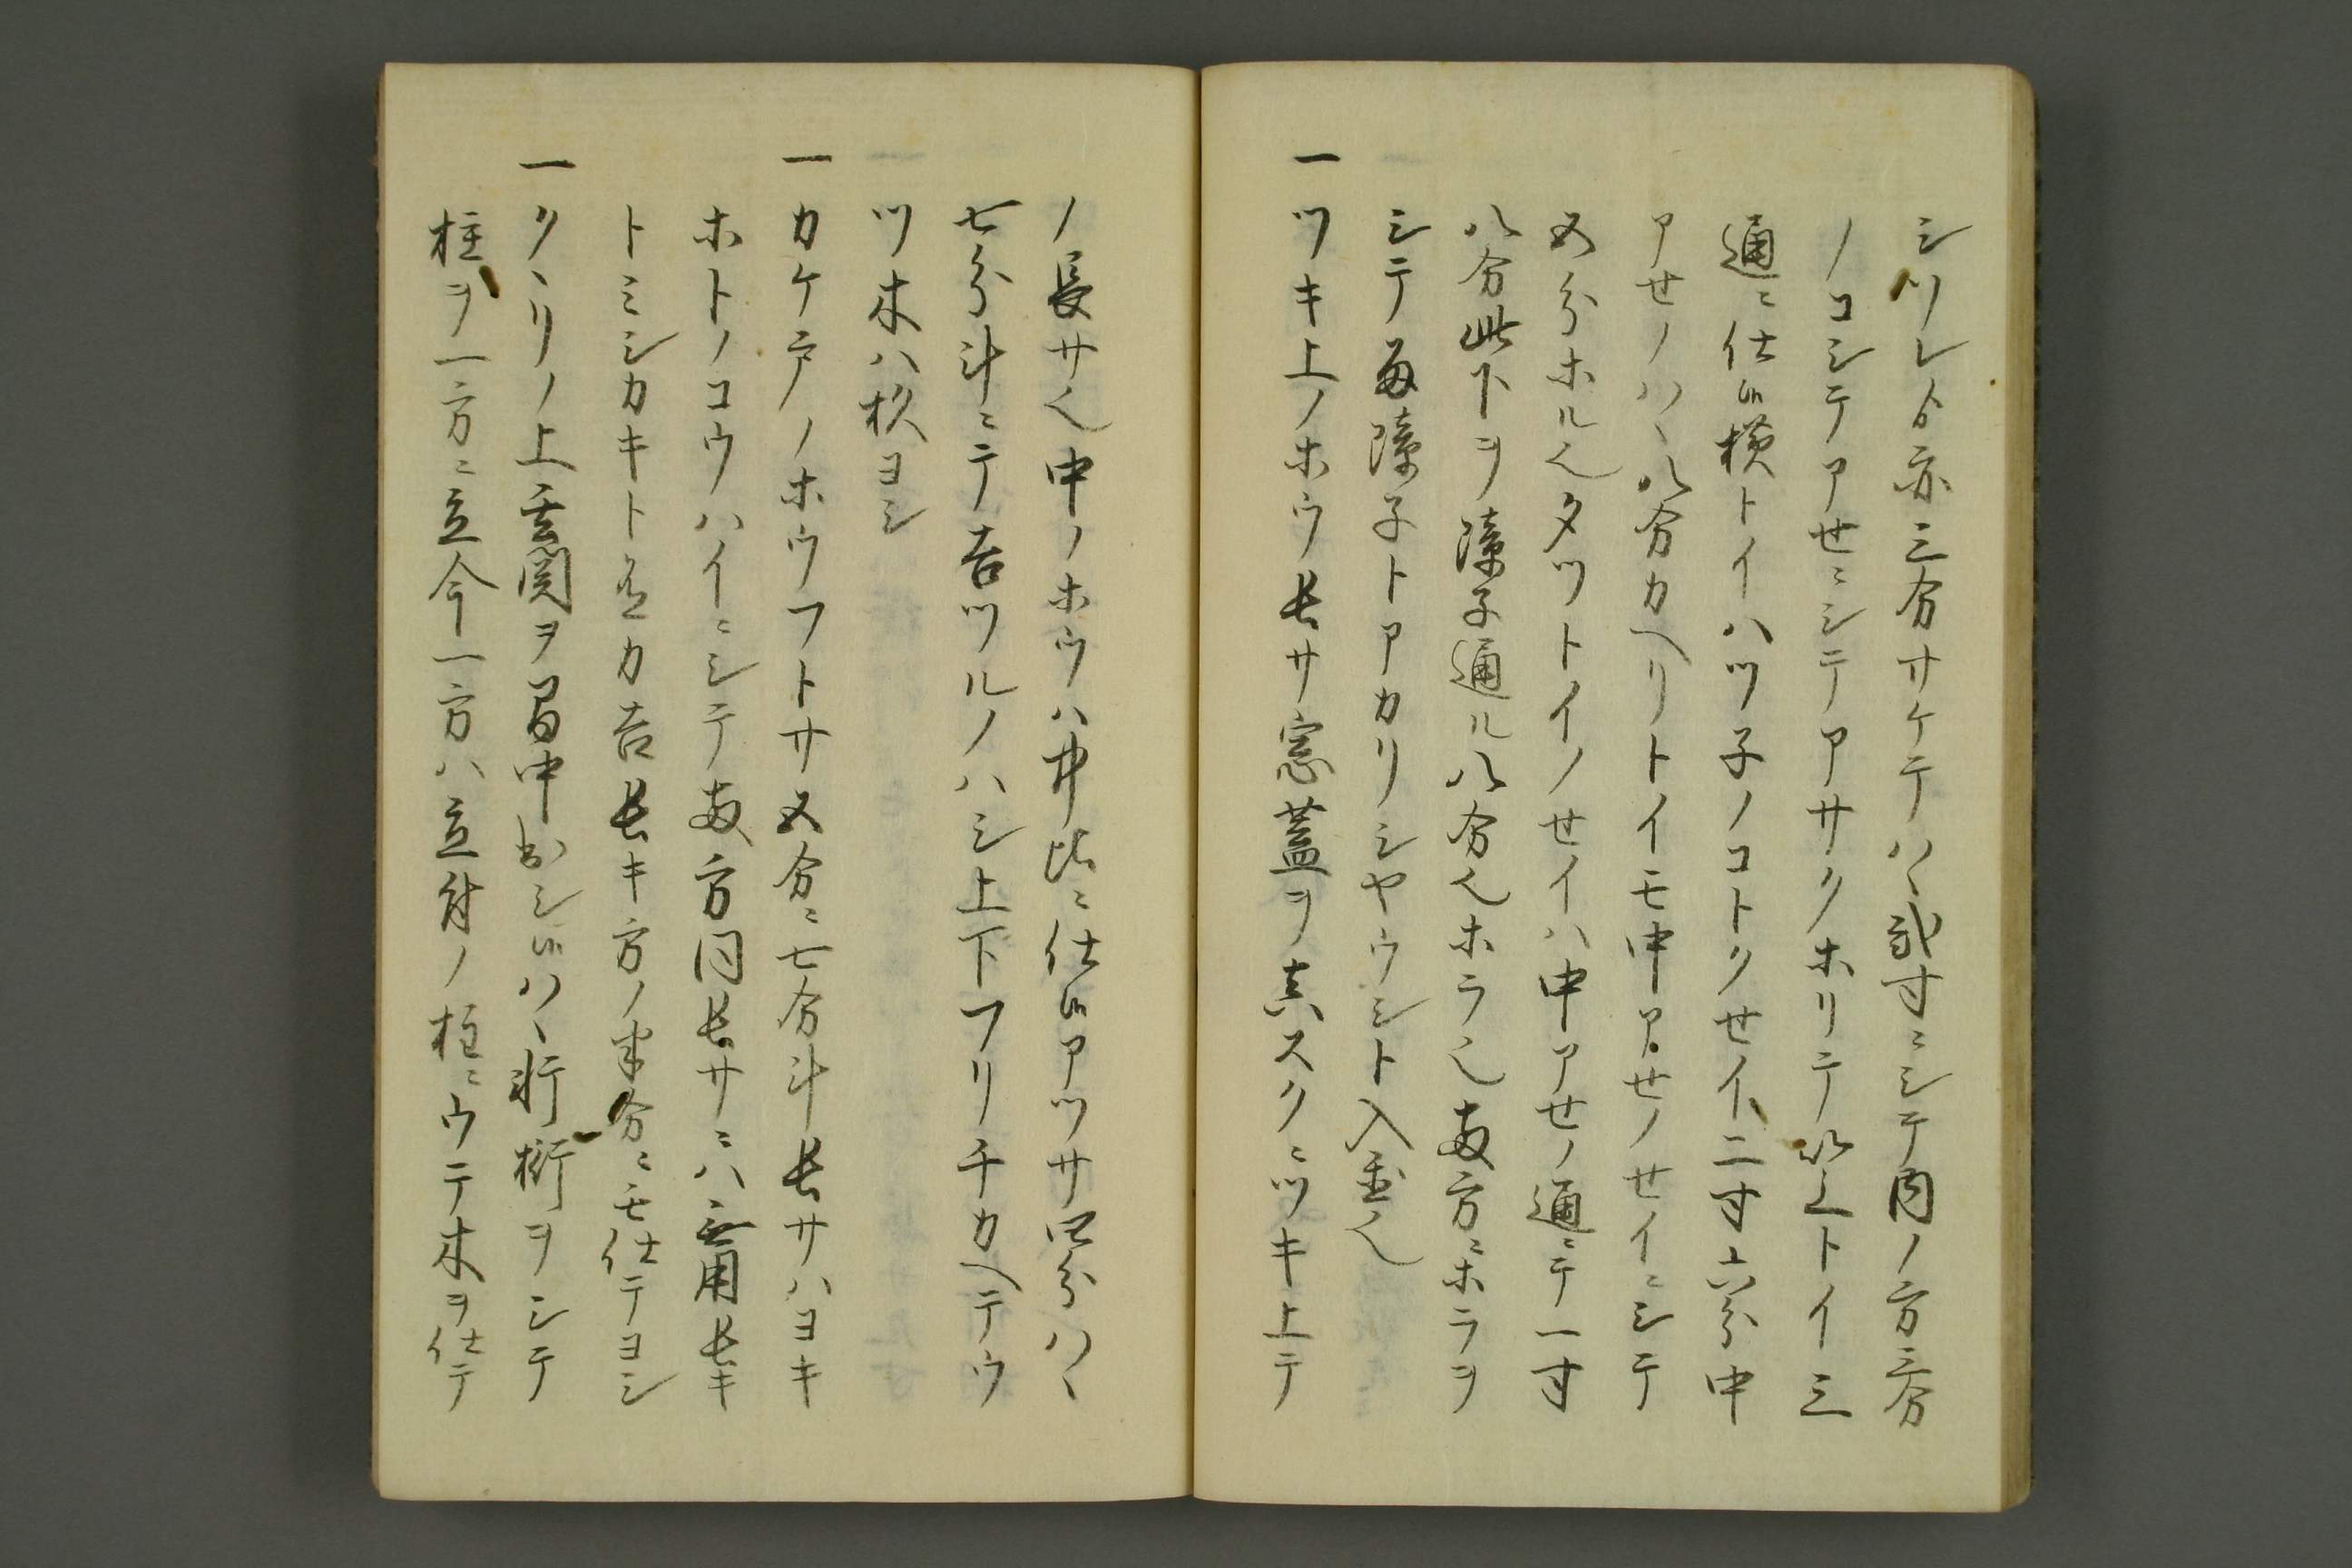 シツレトモ亦三分サケテハヽ弐寸ニシテ内ノ方三分
ノコシテアせニシテアサクホリテ以上トイ三
通ニ仕候横トイハツ子ノコトクせイ二寸六分中
アせノハヽ八分カヘリトイモ中アせノせイニシテ
五分ホル也タツトイノせイハ中アせノ通ニテ一寸
八分此下ヲ障子通ル八分也ホラ也両方ニホラヲ
シテ両障子トアカリシヤウシト入並也
一ツキ上ノホウ長サ窓蓋ヲ真スクニツキ上テ
ノ長サ也中ノホウハ井比ニ仕候アツサ四分ハヽ
七分斗ニテ吉ツルノハシ上下フリチカヘテウ
ツ木ハ杉ヨシ
一カケ戸ノホウフトサ五分ニ七分斗長サハヨキ
ホトノコウハイニシテ両方同長サニハ無用長キ
トミシカキト色カ吉長キ方ノ半分ニモ仕テヨシ
一クヽリノ上玄関ヲ昌中出シ候ハヽ桁桁ヲシテ
柱ヲ一方ニ立今一方ハ立付ノ柱ニウテ木ヲ仕テ